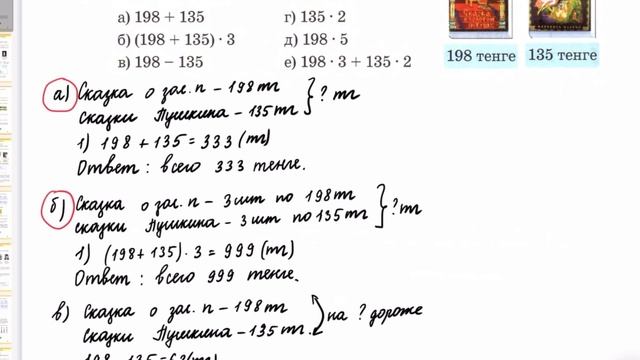 а) 198 + 135 г) 135 · 2
б) (198 + 135) · 3 д) 198 · 5
в) 198 − 135 е) 198 · 3 + 135 · 2
198 тенге 135 тенге
а) Сказка о зол. п – 198 тг
Сказки Пушкина – 135 тг } ? тг
1) 198 + 135 = 333 (тг)
Ответ : всего 333 тенге.
б) Сказка о зол. п – 3 шт по 198 тг
Сказки Пушкина – 3 шт по 135 тг } ? тг
1) (198 + 135) · 3 = 999 (тг)
Ответ : всего 999 тенге.
в) Сказка о зол. п – 198 тг
на ? дороже
Сказки Пушкина – 135 тг.
198 – 135 = 63 (тг)